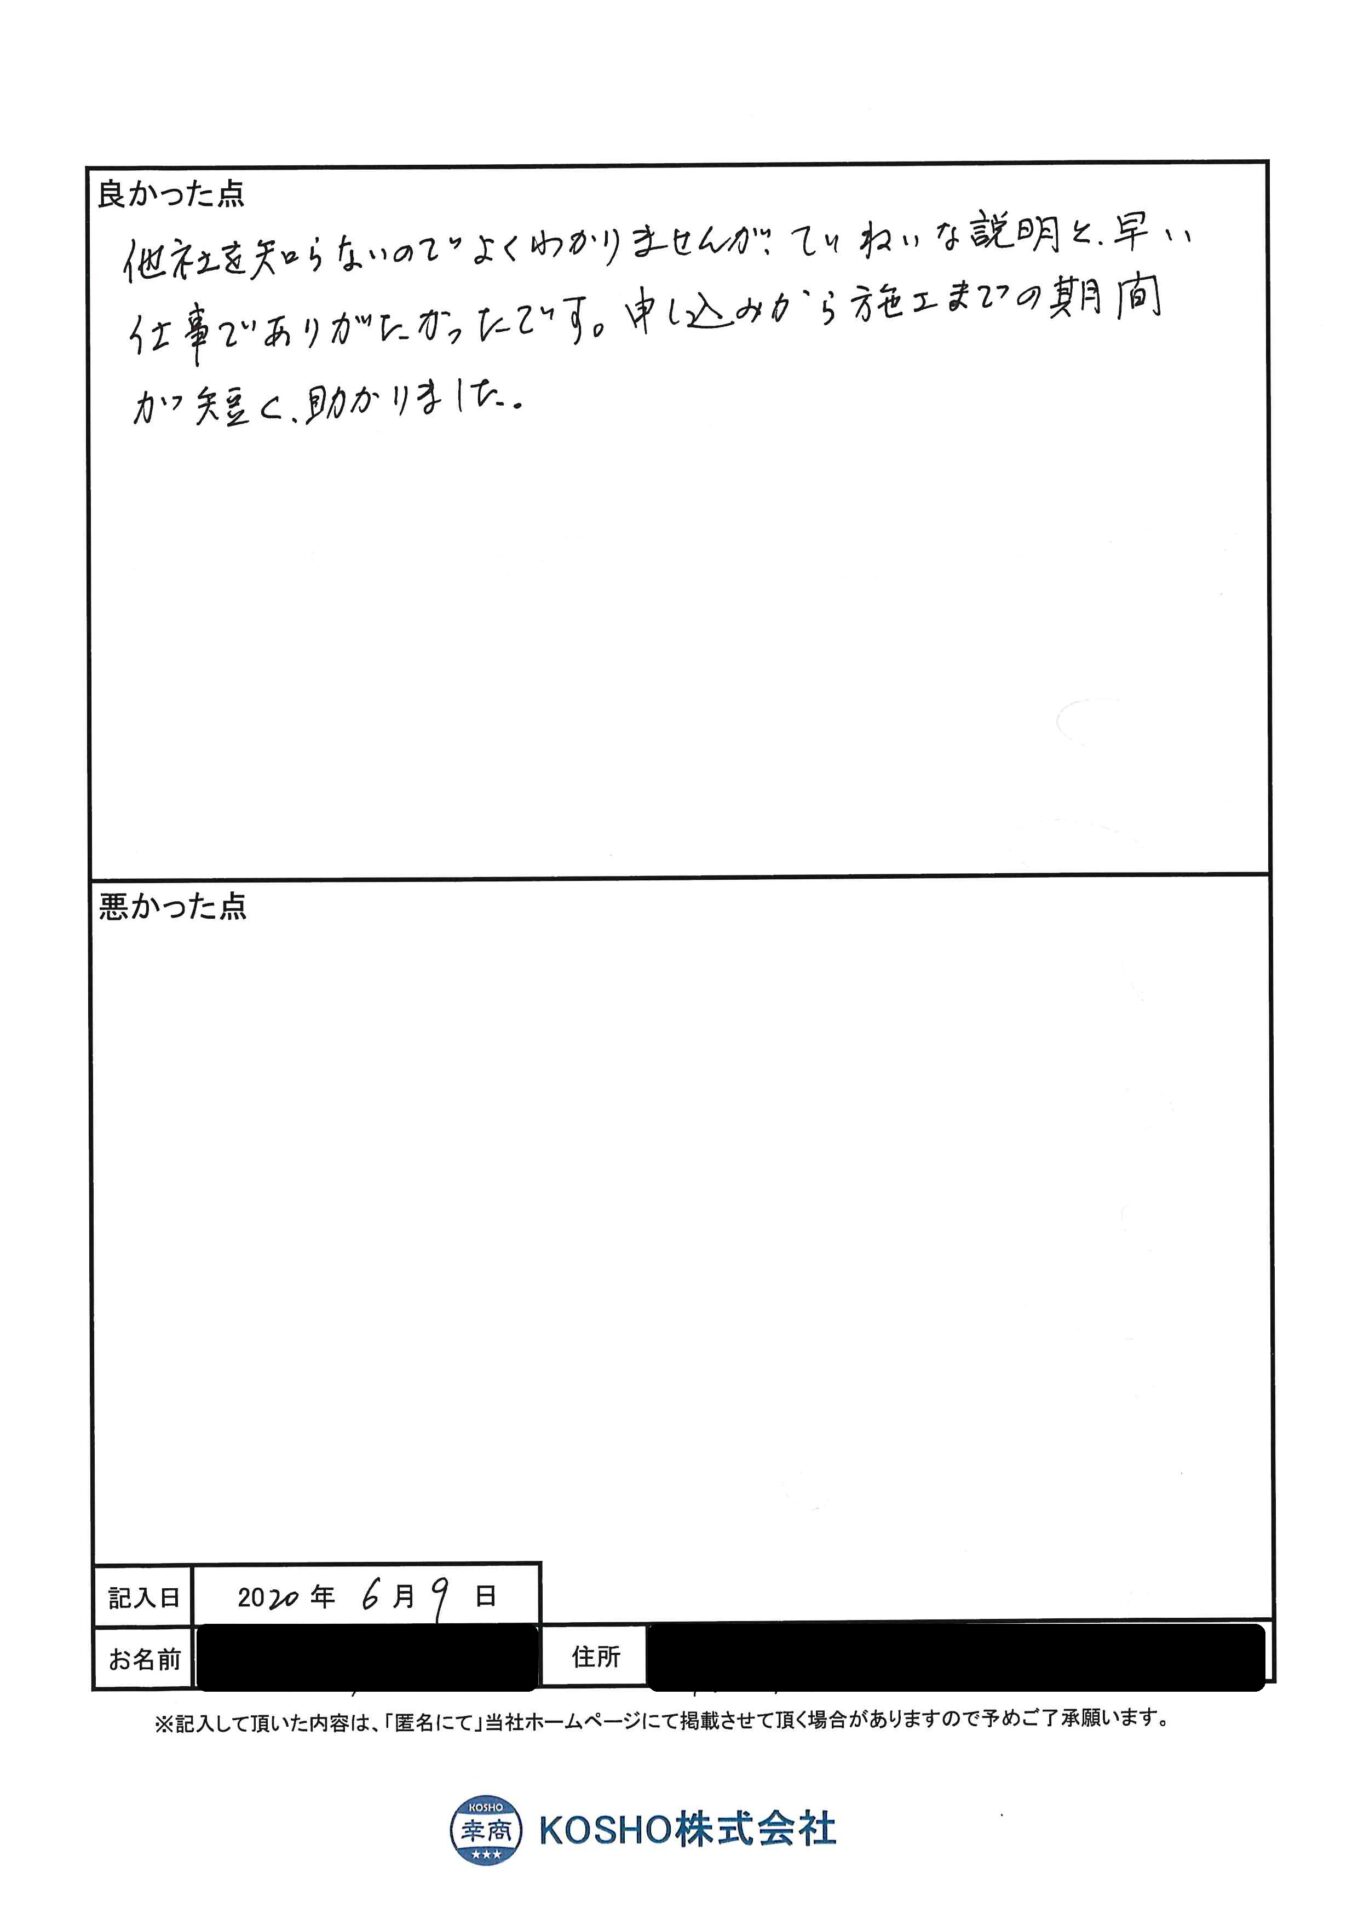 良かった点
他社を知らないのでよくわかりませんが、ていねいな説明と、早い
仕事でありがたかったです。申し込みから施工までの期間
が短く、助かりました。
悪かった点
記入日 2020年 6月 9日
お名前 住所
※記入して頂いた内容は、「匿名にて」当社ホームページにて掲載させて頂く場合がありますので予めご了承願います。
KOSHO
幸商
★★★
KOSHO株式会社